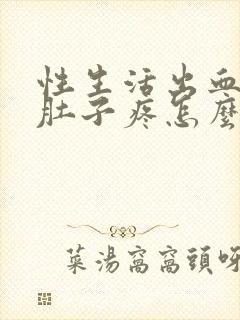 性生活出血
肚子疼怎麼
菜湯窩窩頭呀